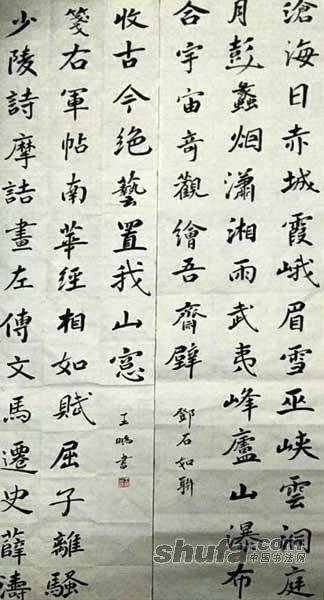 滄海日赤城霞峨眉雪巫峽雲洞庭
月彭蠡烟瀟湘雨武夷峰廬山瀑布
合宇宙奇觀繪吾齋壁
鄧石如聯
少陵詩摩詰畫左傳文馬遷史薛濤
箋右軍帖南華經相如賦屈子離騷
收古今絕藝置我山窓
王鵬書
shufa.com
中国书法网